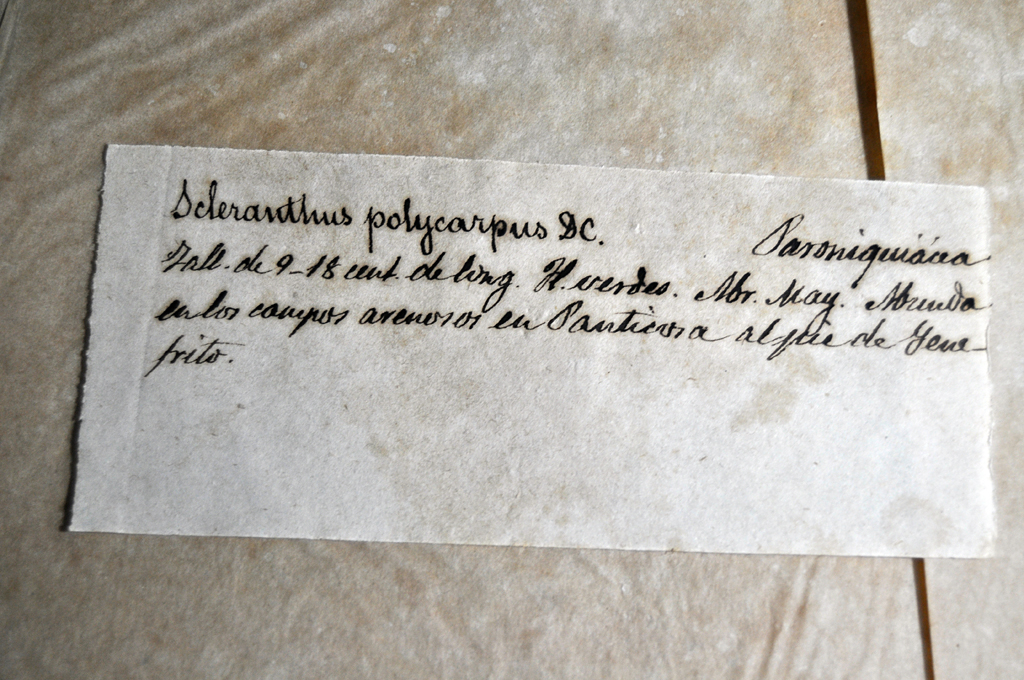 Scleranthus polycarpus DC.
Paroniquiácea
Tall. de 9-18 cent. de long. H. verdes. Abr. May. Abunda
en los campos arenosos en Panticosa al pie de Yene-
frito.